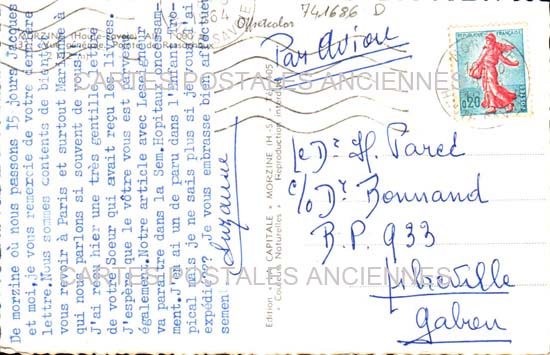 MORZINE (Hau
Offsetcolor
741686 D
Par Avion
0,20
POSTES
De morzine où nous passons 15 jours Jacques
et moi,je vous remercie de votre dernière
lettre.Nous sommes contents de bientôt
vous revoir à Paris et surtout Marianne à
qui nous parlons si souvent de vous!
J'ai reçu hier une très gentille lettre
de votre Soeur qui avait reçu les livres.
J'espère que le vôtre vous est arrivé
également.Notre article avec Leselgneur
va paraître dans la Sem.Hopitaux incessam-
ment.J'en ai un de paru dans l'Enfant Tro-
pical mais je ne sais plus si je vous l'ai
expédié??? Je vous embrasse bien affectueu
semen
Suzanne
Edition "LA CAPITALE" MORZINE (H.-S.) - Tél.
Couleurs Naturelles Reproduction interdite
Le Dr H. Parcé
c/o Dr Bonnand
B.P. 933
Libreville
Gabon
CARTES POSTALES ANCIENNES
CARTES POSTALES ANCIENNES